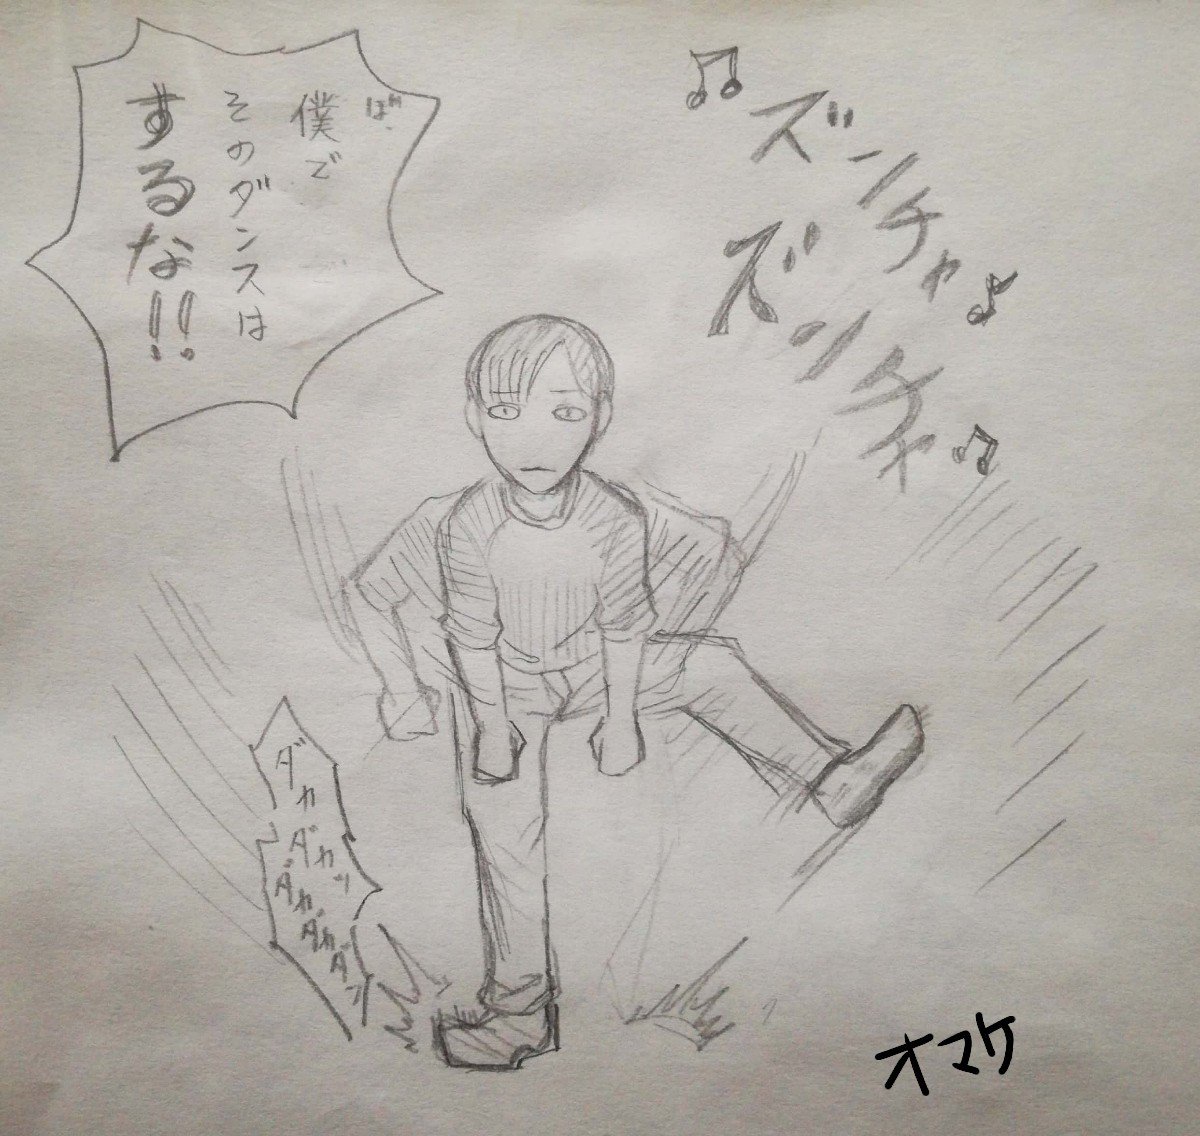 ば、
僕で
そのダンスは
するな!!
ズンチャ
ズンチャ
ダカ
ダカッ
ダカダカダン
オマケ